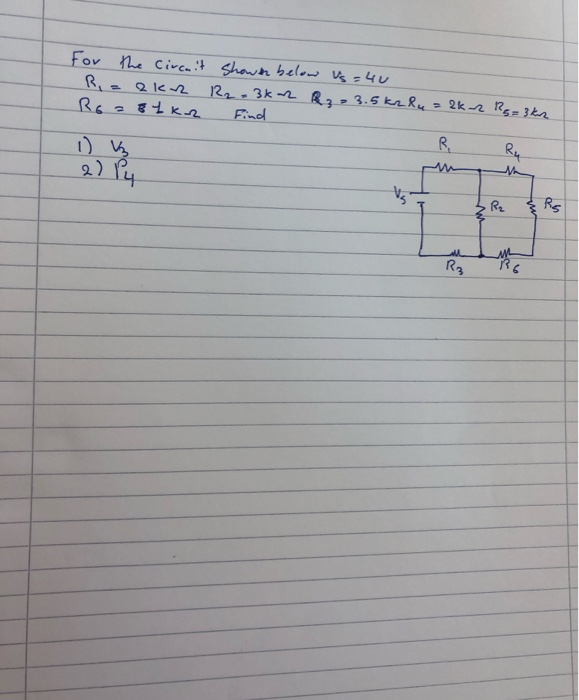 For the circuit shown below Vs = 4V
R1 = 2kΩ R2 = 3kΩ R3 = 3.5kΩ R4 = 2kΩ R5 = 3kΩ
R6 = 1kΩ Find
1) V3
2) P4
R1
R4
Vs
R2
R5
R3
R6